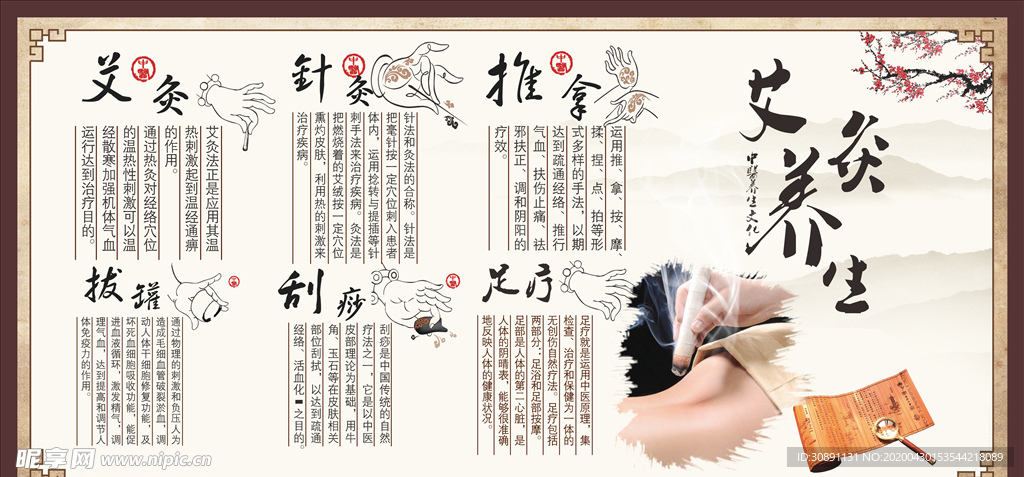 艾灸
中醫
艾灸法正是应用其温
热刺激起到温经通痹
的作用。
通过热灸对经络穴位
的温热性刺激可以温
经散寒加强机体气血
运行达到治疗目的。
針灸
中醫
针法和灸法的合称。针法是
把毫针按一定穴位刺入患者
体内，运用捻转与提插等针
刺手法来治疗疾病。灸法是
把燃烧着的艾绒按一定穴位
熏灼皮肤，利用热的刺激来
治疗疾病。
推拿
中醫
运用推、拿、按、摩、
揉、捏、点、拍等形
式多样的手法，以期
达到疏通经络、推行
气血、扶伤止痛、祛
邪扶正、调和阴阳的
疗效。
艾灸养生
中醫养生文化
拔罐
通过物理的刺激和负压人为
造成毛细血管破裂淤血，调
动人体干细胞修复功能，及
坏死血细胞吸收功能，能促
进血液循环，激发精气，调
理气血，达到提高和调节人
体免疫力的作用。
刮痧
刮痧是中国传统的自然
疗法之一，它是以中医
皮部理论为基础，用牛
角、玉石等在皮肤相关
部位刮拭，以达到疏通
经络、活血化之目的。
足疗
足疗就是运用中医原理，集
检查、治疗和保健为一体的
无创伤自然疗法。足疗包括
两部分：足浴和足部按摩。
足部是人体的第二心脏，是
人体的阴晴表，能够很准确
地反映人体的健康状况。
昵享网 www.nipic.cn
ID:30891131 NO:20200430153544218089